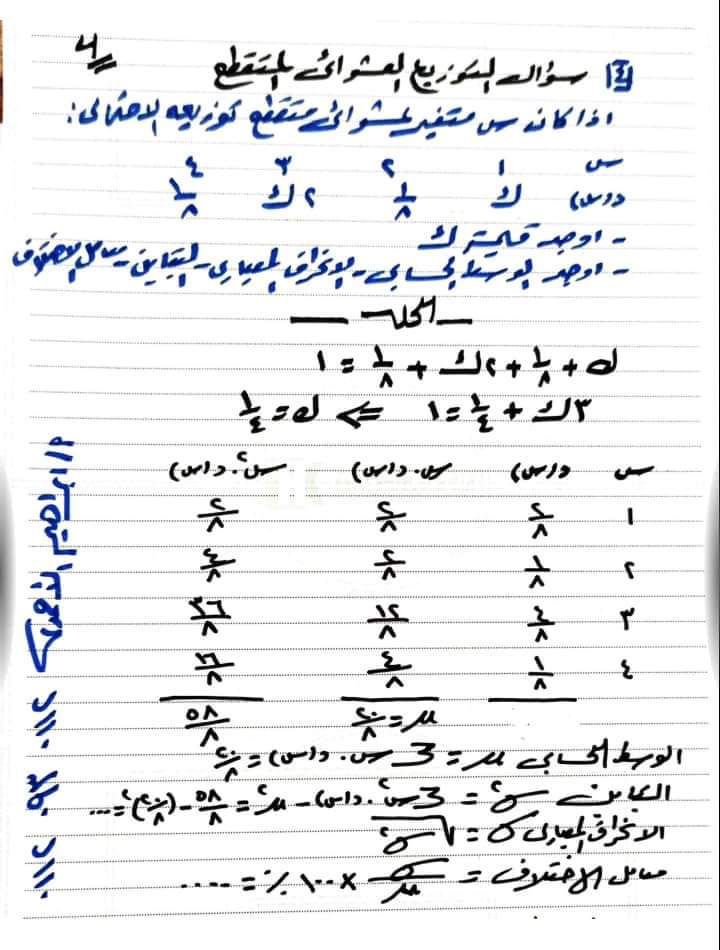 ٤
١٤ سؤال التوزيع العشوائى المتقطع
اذا كان س متغير عشوائى متقطع توزيعه الاحتمالى:
س ١ ٢ ٣ ٤
د(س) ك ١/٨ ٢ك ١/٨
- اوجد قيمة ك
- اوجد الوسط الحسابى - الانحراف المعيارى - التباين - معامل الاختلاف
الحل
ك + ١/٨ + ٢ك + ١/٨ = ١
٣ك + ١/٤ = ١ ⇐ ك = ١/٤
س د(س) س.د(س) س٢.د(س)
١ ٢/٨ ٢/٨ ٢/٨
٢ ١/٨ ٢/٨ ٤/٨
٣ ٤/٨ ١٢/٨ ٣٦/٨
٤ ١/٨ ٤/٨ ١٦/٨
μ = ٢٠/٨ ٥٨/٨
الوسط الحسابى μ = Σ س.د(س) = ٢٠/٨
التباين σ٢ = Σ س٢.د(س) - μ٢ = ٥٨/٨ - (٢٠/٨)٢ = ...
الانحراف المعيارى σ = √σ٢
معامل الاختلاف = σ/μ × ١٠٠ ٪ = ....